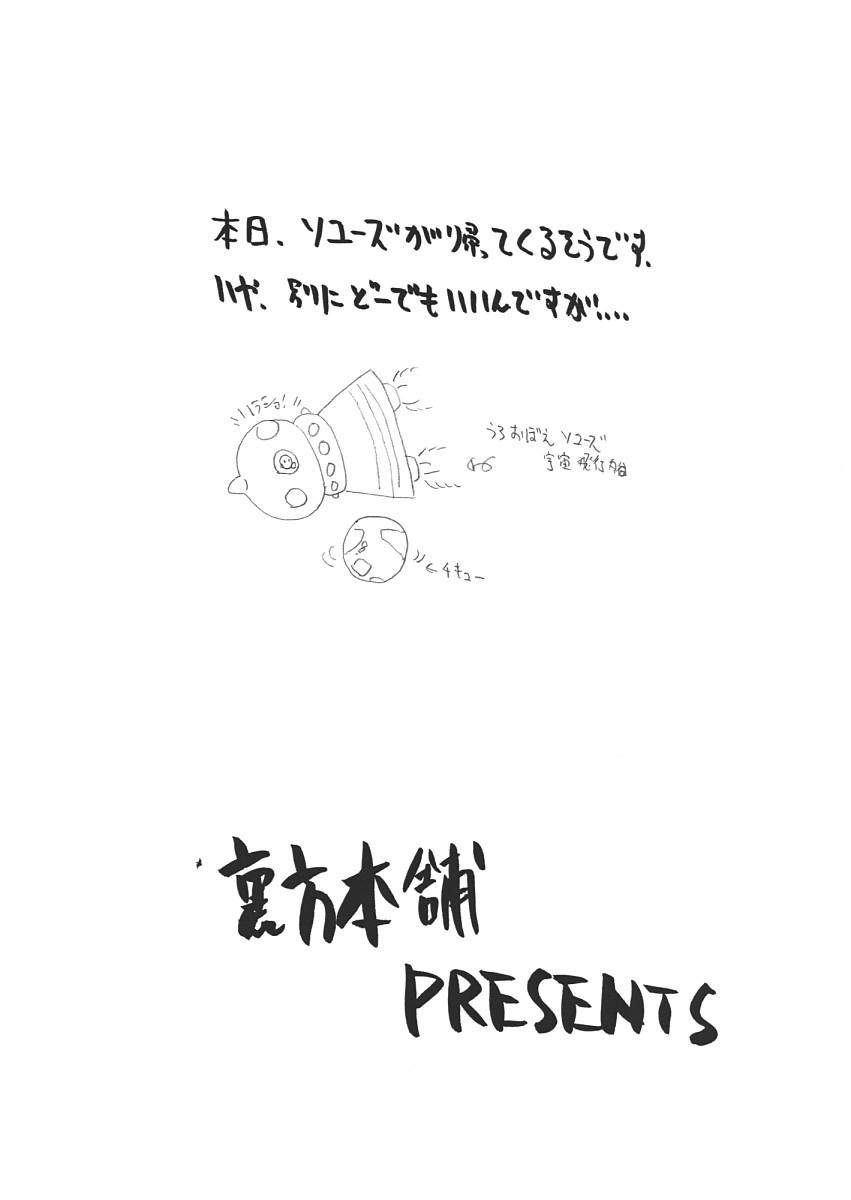 本日、ソユーズが帰ってくるそうです。
いや、別にどーでもいいんですが...
ハラショ!
うろおぼえソユーズ
宇宙飛行
←チキュー
裏方本舗
PRESENTS